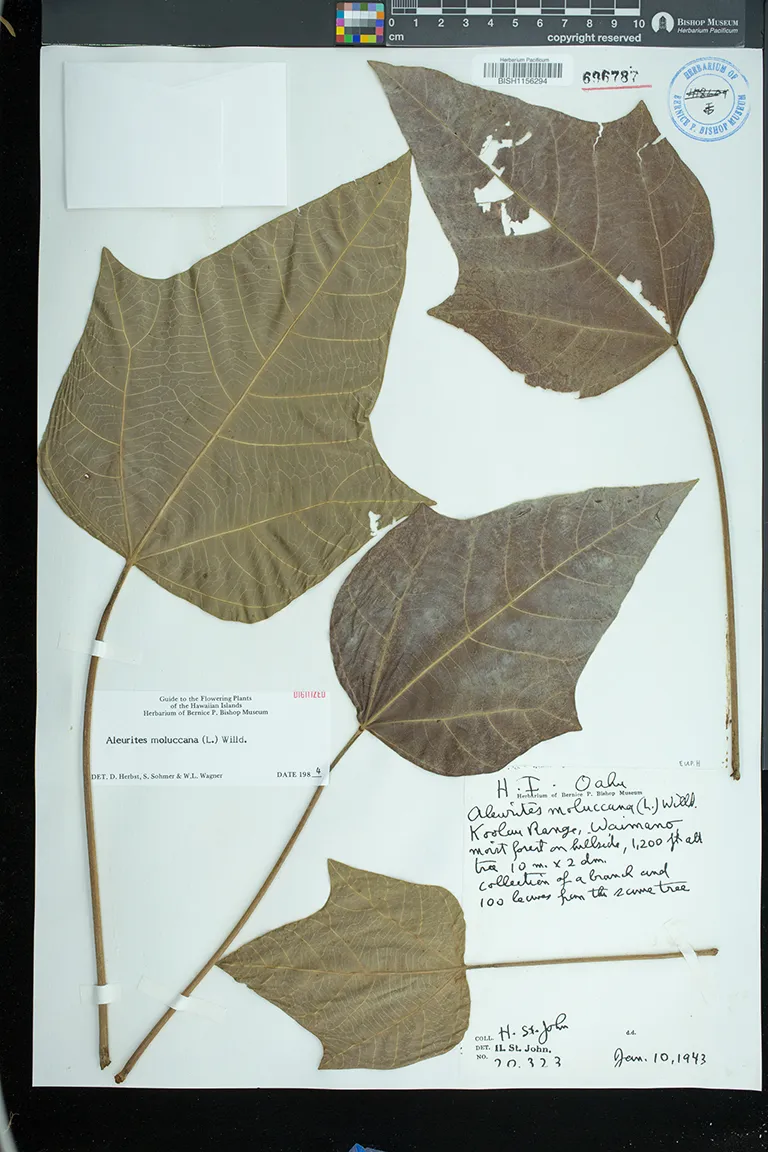 0 1 2 3 4 5 6 7 8 9 10
cm
copyright reserved
BISHOP MUSEUM
Herbarium Pacificum
Herbarium Pacificum
BISH1156294
696787
HERBARIUM OF
BERNICE P. BISHOP MUSEUM
DIGITIZED
Guide to the Flowering Plants
of the Hawaiian Islands
Herbarium of Bernice P. Bishop Museum
Aleurites moluccana (L.) Willd.
DET. D. Herbst, S. Sohmer & W.L. Wagner DATE 1984
EUPH
H. I. Oahu
Herbarium of Bernice P. Bishop Museum
Aleurites moluccana (L.) Willd.
Koolau Range, Waimano
moist forest on hillside, 1,200 ft alt
tree 10 m. x 2 dm.
collection of a branch and
100 leaves from the same tree
COLL. H. St. John
DET. H. St. John.
NO. 20,323 Jan. 10, 1943